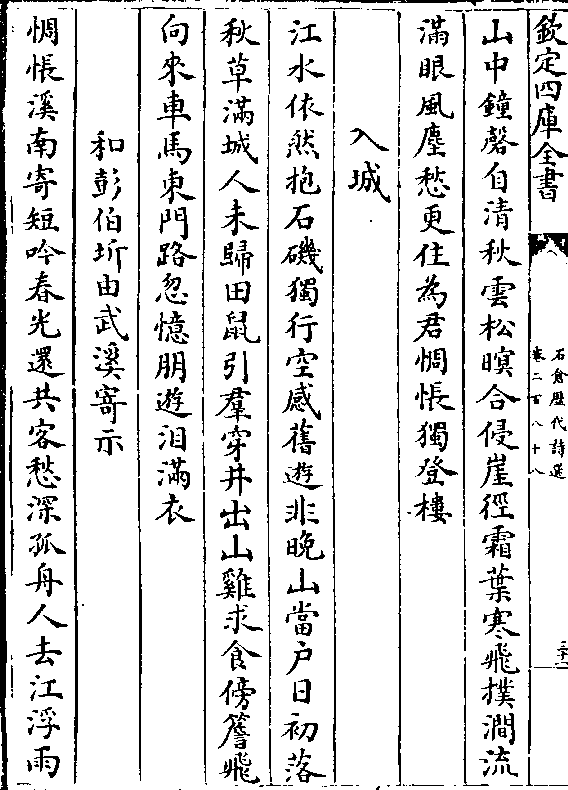 欽定四庫全書
石倉歷代詩選
卷二百八十八
山中鐘磬自清秋雲松暝合侵崖徑霜葉寒飛撲澗流
滿眼風塵愁更住為君惆悵獨登樓
入城
江水依然抱石磯獨行空感舊遊非晚山當戶日初落
秋草滿城人未歸田鼠引羣穿井出山雞求食傍簷飛
向來車馬東門路忽憶朋遊泪滿衣
和彭伯圻由武溪寄示
惆悵溪南寄短吟春光還共客愁深孤舟人去江浮雨